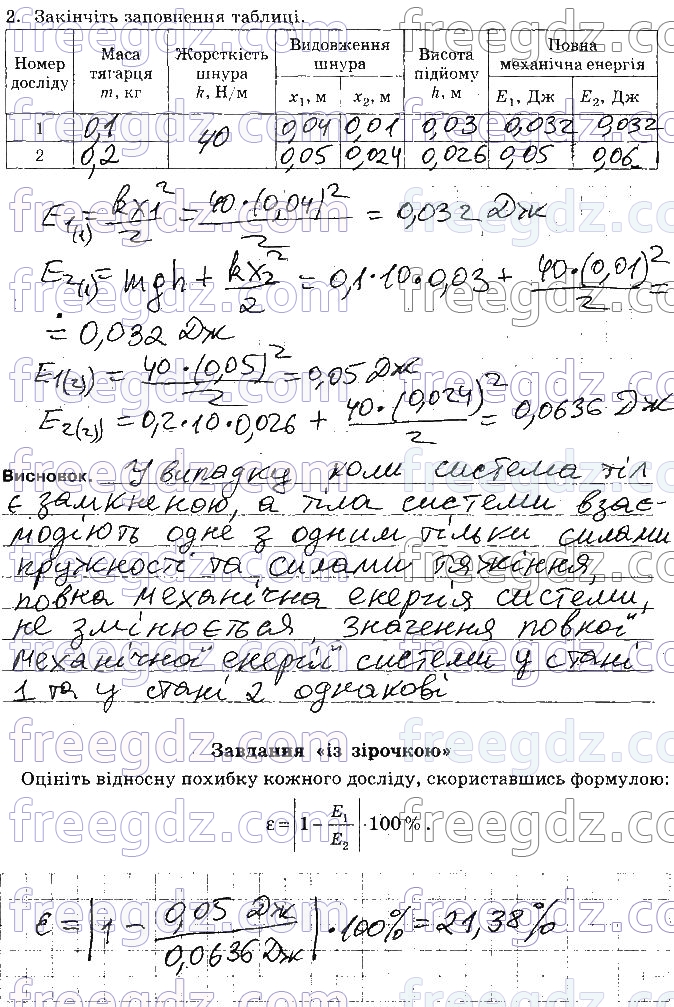 2. Закінчіть заповнення таблиці.
Номер досліду | Маса тягарця m, кг | Жорсткість шнура k, Н/м | Видовження шнура | Висота підйому h, м | Повна механічна енергія
x₁, м | x₂, м | E₁, Дж | E₂, Дж
1 | 0,1 | 40 | 0,04 | 0,01 | 0,03 | 0,032 | 0,032
2 | 0,2 | 0,05 | 0,024 | 0,026 | 0,05 | 0,06
E₁₍₁₎ = kx₁²/2 = 40·(0,04)²/2 = 0,032 Дж
E₂₍₁₎ = mgh + kx₂²/2 = 0,1·10·0,03 + 40·(0,01)²/2 =
= 0,032 Дж
E₁₍₂₎ = 40·(0,05)²/2 = 0,05 Дж
E₂₍₂₎ = 0,2·10·0,026 + 40·(0,024)²/2 = 0,0636 Дж
Висновок. У випадку коли система тіл
є замкненою, а тіла системи взає-
модіють одне з одним тільки силами
пружності та силами тяжіння,
повна механічна енергія системи,
не змінюється, значення повної
механічної енергії системи у стані
1 та у стані 2 однакові
Завдання «із зірочкою»
Оцініть відносну похибку кожного досліду, скориставшись формулою:
ε = |1 − E₁/E₂| · 100% .
ε = |1 − 0,05 Дж/0,0636 Дж| · 100% = 21,38%
freegdz.com